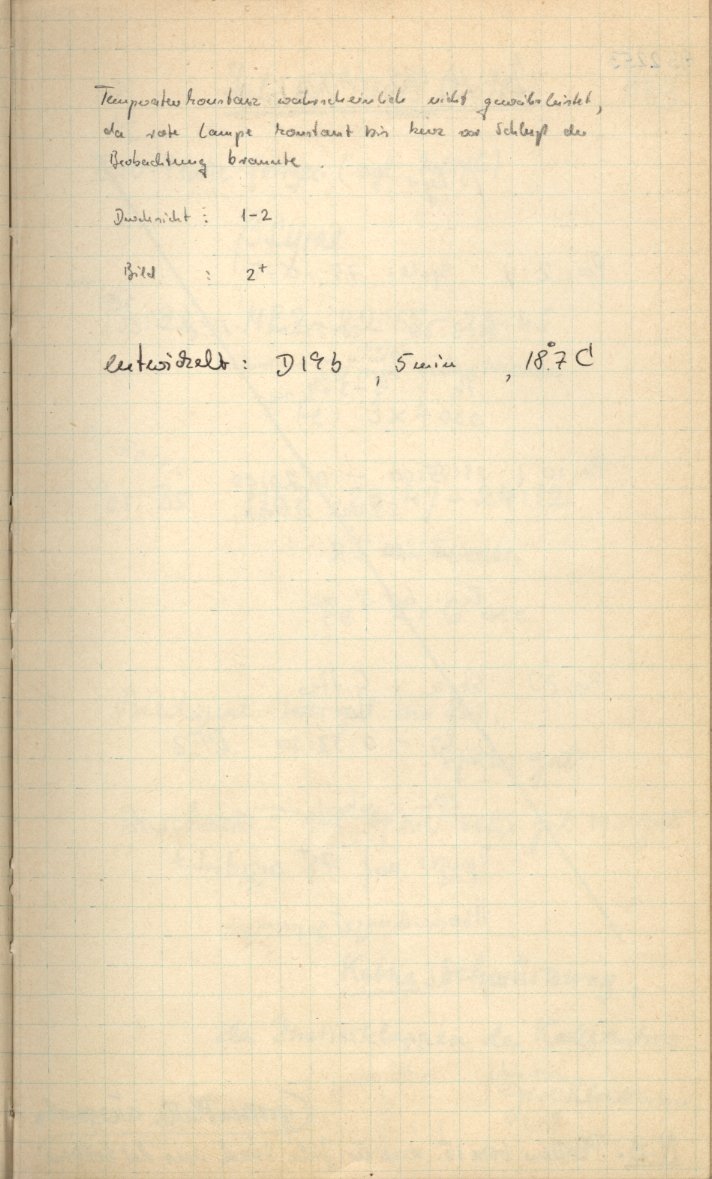 Temperaturkonstanz wahrscheinlich nicht gewährleistet,
da rote Lampe konstant bis kurz vor Schluß der
Beobachtung brannte.
Durchsicht : 1-2
Bild : 2+
entwickelt : D19b , 5 min , 18°.7 C